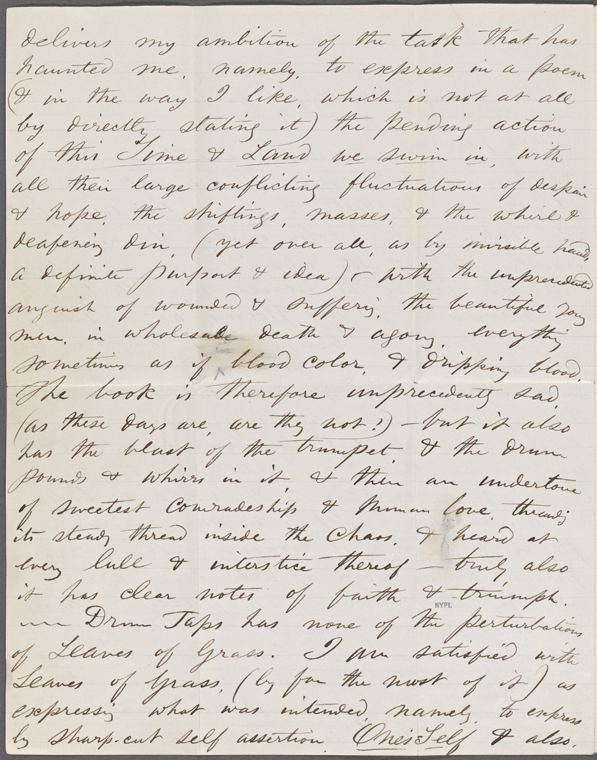 delivers my ambition of the task that has
haunted me, namely, to express in a poem
(& in the way I like, which is not at all
by directly stating it) the pending action
of this Time & Land we swim in, with
all their large conflicting fluctuations of despair
& hope, the shiftings, masses, & the whirl &
deafening din, (yet over all, as by invisible hand,
a definite purport & idea) – with the unprecedented
anguish of wounded & suffering, the beautiful young
men, in wholesale death & agony, everything
sometimes as if blood color, & dripping blood.
The book is therefore unprecedently sad,
(as these days are, are they not?) – but it also
has the blast of the trumpet, & the drum
pounds & whirrs in it, & then an undertone
of sweetest comradeship & human love, threading
its steady thread inside the chaos, & heard at
every lull & interstice thereof – truly also
it has clear notes of faith & triumph.
NYPL
Drum Taps has none of the perturbations
of Leaves of Grass. I am satisfied with
Leaves of Grass, (by far the most of it) as
expressing what was intended, namely, to express
by sharp-cut self assertion, One's Self & also,